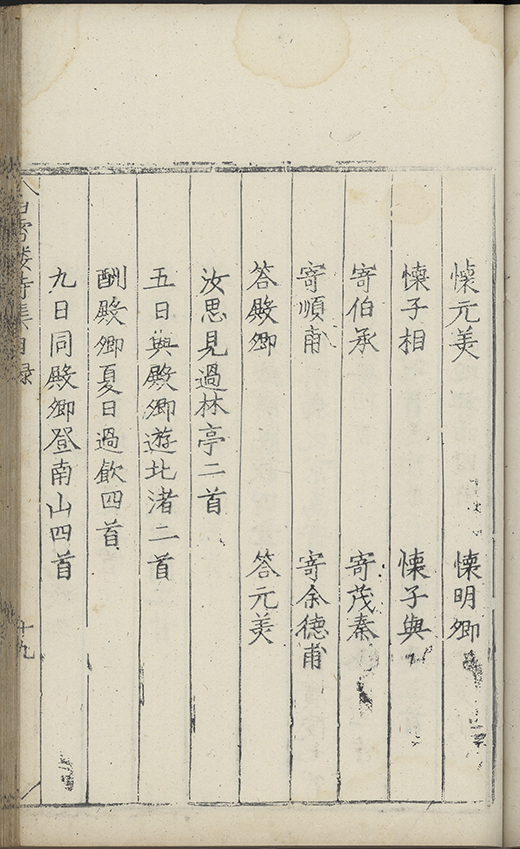 懷元美 懷明卿
懷子相 懷子與
寄伯承 寄茂秦
寄順甫 寄余德甫
答殿卿 答元美
汝思見過林亭二首
五日與殿卿遊北渚二首
酬殿卿夏日過飲四首
九日同殿卿登南山四首
白雪樓詩集目録 十九